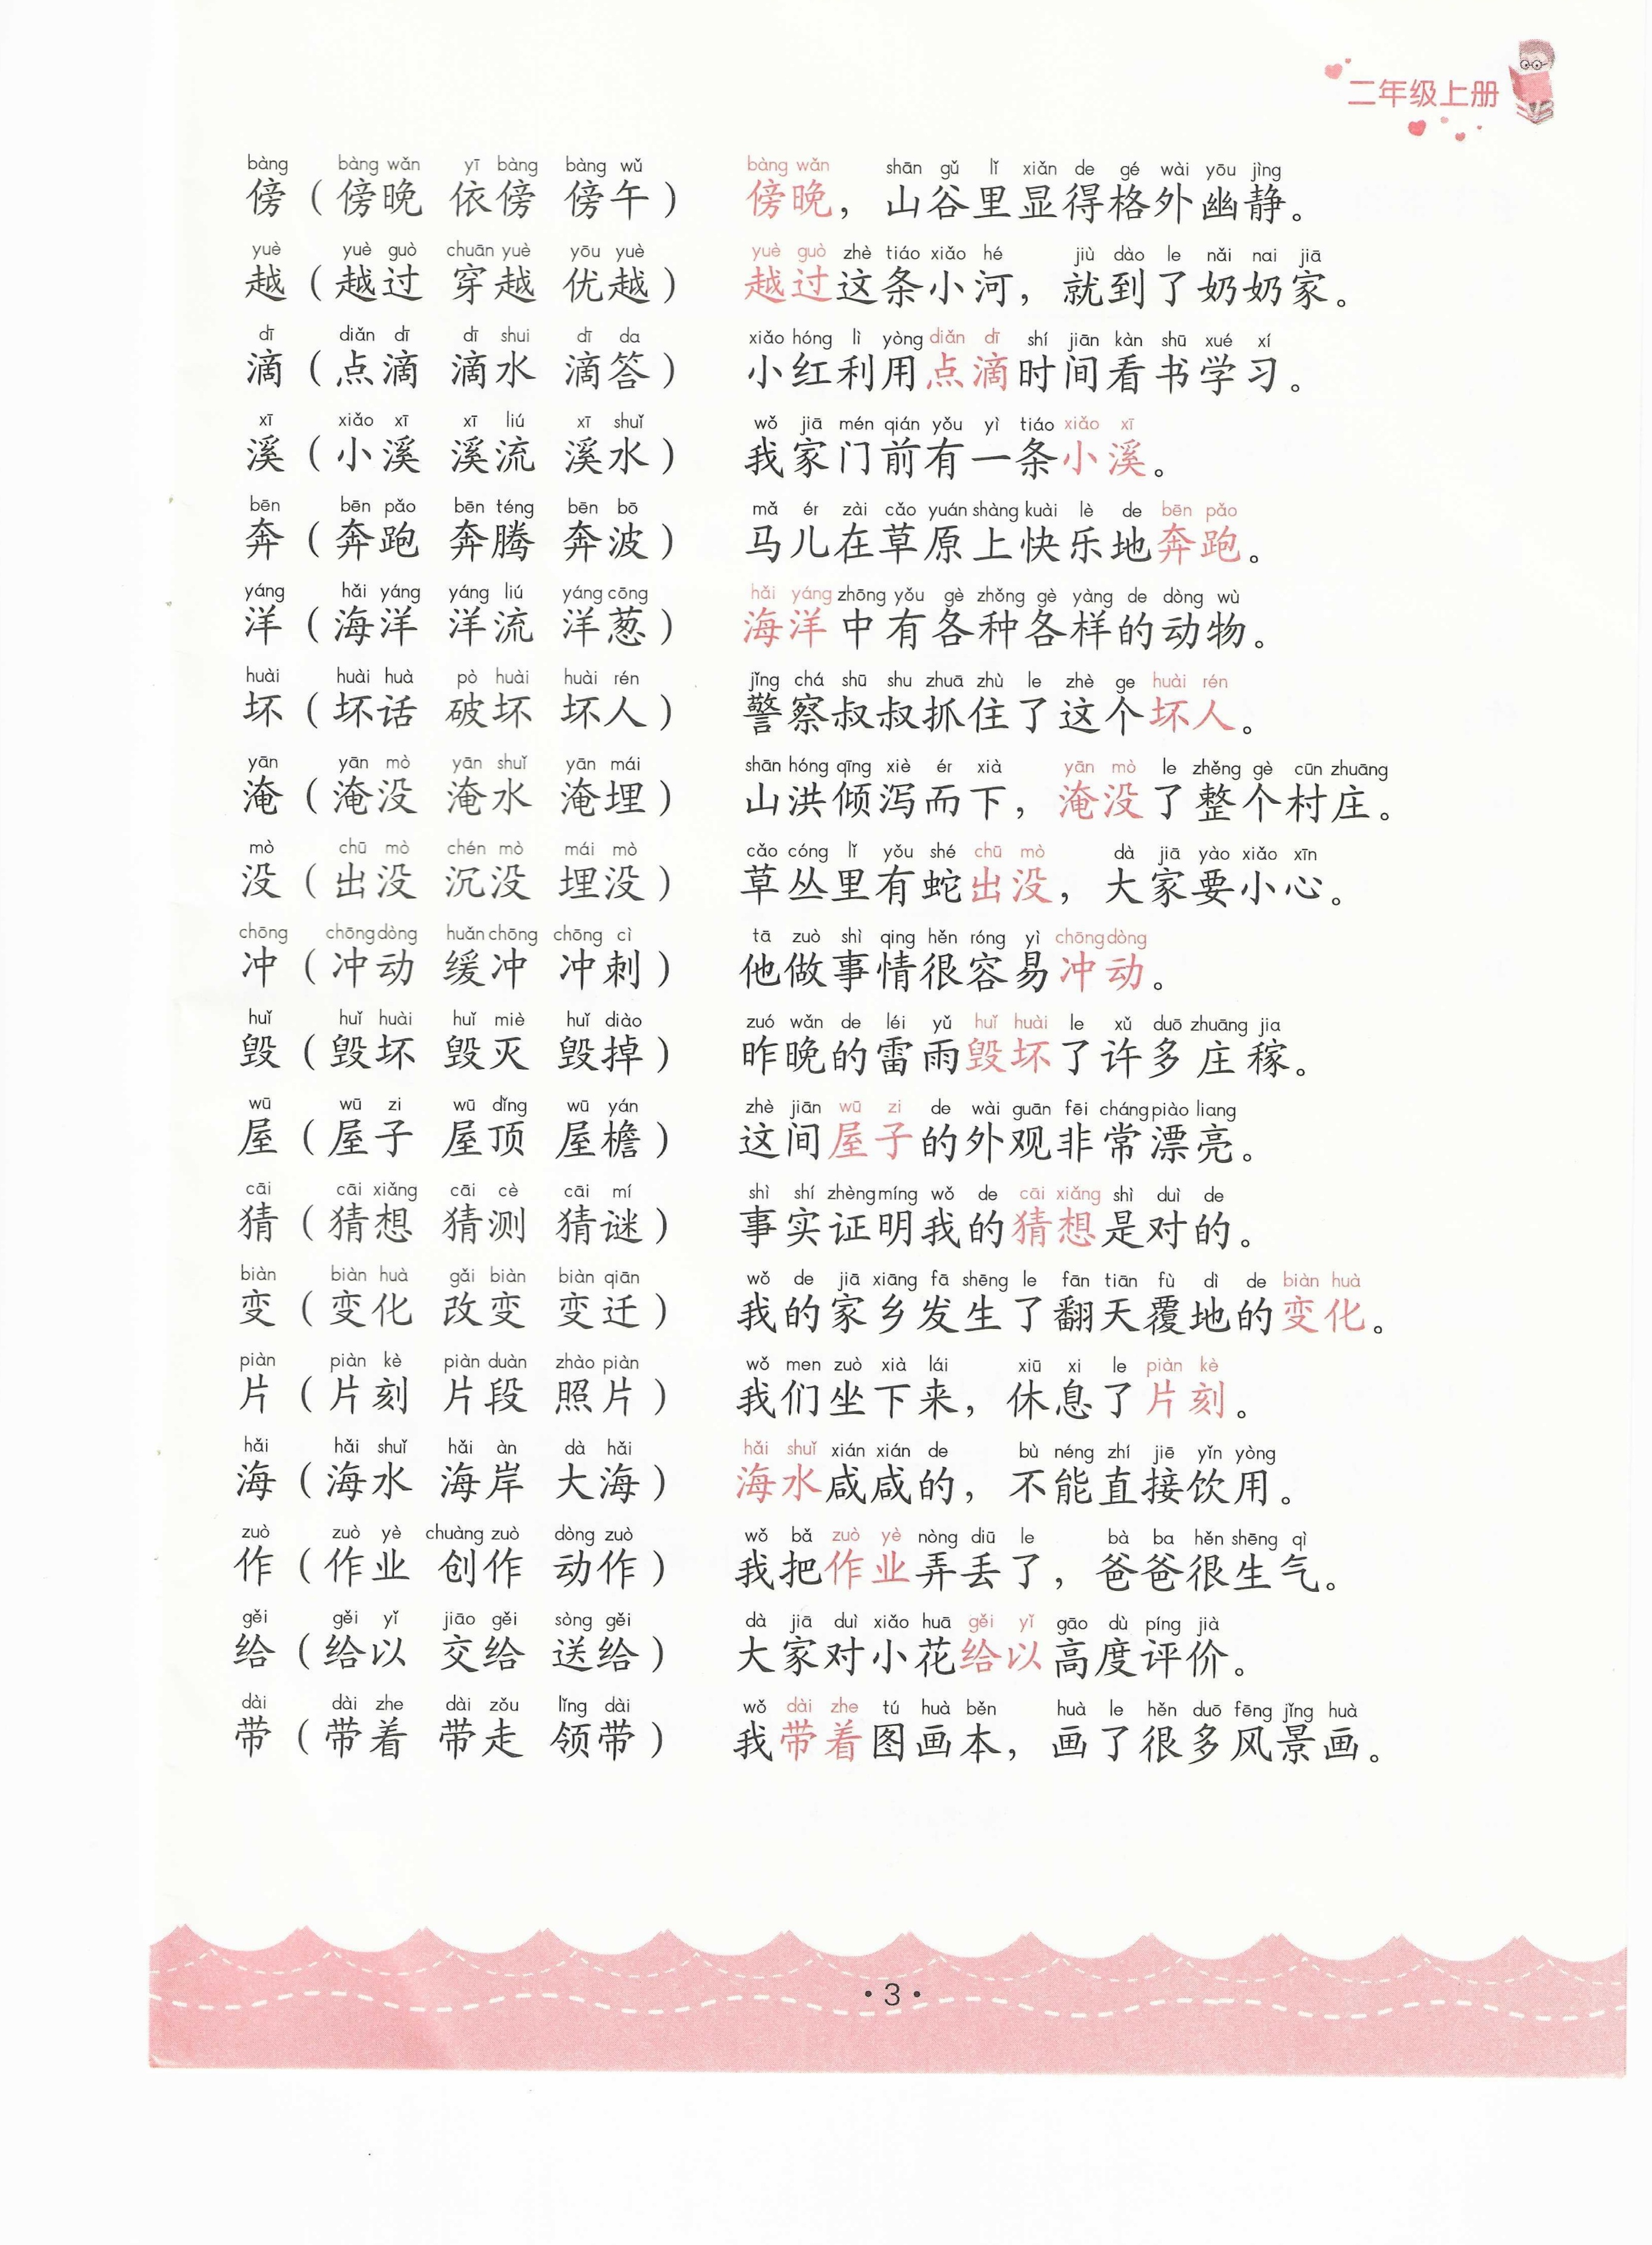 二年级上册
bàng bàng wǎn yī bàng bàng wǔ bàng wǎn shān gǔ lǐ xiǎn de gé wài yōu jìng
傍（傍晚 依傍 傍午） 傍晚，山谷里显得格外幽静。
yuè yuè guò chuān yuè yōu yuè yuè guò zhè tiáo xiǎo hé jiù dào le nǎi nai jiā
越（越过 穿越 优越） 越过这条小河，就到了奶奶家。
dī diǎn dī dī shui dī da xiǎo hóng lì yòng diǎn dī shí jiān kàn shū xué xí
滴（点滴 滴水 滴答） 小红利用点滴时间看书学习。
xī xiǎo xī xī liú xī shuǐ wǒ jiā mén qián yǒu yì tiáo xiǎo xī
溪（小溪 溪流 溪水） 我家门前有一条小溪。
bēn bēn pǎo bēn téng bēn bō mǎ ér zài cǎo yuán shàng kuài lè de bēn pǎo
奔（奔跑 奔腾 奔波） 马儿在草原上快乐地奔跑。
yáng hǎi yáng yáng liú yáng cōng hǎi yáng zhōng yǒu gè zhǒng gè yàng de dòng wù
洋（海洋 洋流 洋葱） 海洋中有各种各样的动物。
huài huài huà pò huài huài rén jǐng chá shū shu zhuā zhù le zhè ge huài rén
坏（坏话 破坏 坏人） 警察叔叔抓住了这个坏人。
yān yān mò yān shuǐ yān mái shān hóng qīng xiè ér xià yān mò le zhěng gè cūn zhuāng
淹（淹没 淹水 淹埋） 山洪倾泻而下，淹没了整个村庄。
mò chū mò chén mò mái mò cǎo cóng lǐ yǒu shé chū mò dà jiā yào xiǎo xīn
没（出没 沉没 埋没） 草丛里有蛇出没，大家要小心。
chōng chōng dòng huǎn chōng chōng cì tā zuò shì qing hěn róng yì chōng dòng
冲（冲动 缓冲 冲刺） 他做事情很容易冲动。
huǐ huǐ huài huǐ miè huǐ diào zuó wǎn de léi yǔ huǐ huài le xǔ duō zhuāng jia
毁（毁坏 毁灭 毁掉） 昨晚的雷雨毁坏了许多庄稼。
wū wū zi wū dǐng wū yán zhè jiān wū zi de wài guān fēi cháng piào liang
屋（屋子 屋顶 屋檐） 这间屋子的外观非常漂亮。
cāi cāi xiǎng cāi cè cāi mí shì shí zhèng míng wǒ de cāi xiǎng shì duì de
猜（猜想 猜测 猜谜） 事实证明我的猜想是对的。
biàn biàn huà gǎi biàn biàn qiān wǒ de jiā xiāng fā shēng le fān tiān fù dì de biàn huà
变（变化 改变 变迁） 我的家乡发生了翻天覆地的变化。
piàn piàn kè piàn duàn zhào piàn wǒ men zuò xià lái xiū xi le piàn kè
片（片刻 片段 照片） 我们坐下来，休息了片刻。
hǎi hǎi shuǐ hǎi àn dà hǎi hǎi shuǐ xián xián de bù néng zhí jiē yǐn yòng
海（海水 海岸 大海） 海水咸咸的，不能直接饮用。
zuò zuò yè chuàng zuò dòng zuò wǒ bǎ zuò yè nòng diū le bà ba hěn shēng qì
作（作业 创作 动作） 我把作业弄丢了，爸爸很生气。
gěi gěi yǐ jiāo gěi sòng gěi dà jiā duì xiǎo huā gěi yǐ gāo dù píng jià
给（给以 交给 送给） 大家对小花给以高度评价。
dài dài zhe dài zǒu lǐng dài wǒ dài zhe tú huà běn huà le hěn duō fēng jǐng huà
带（带着 带走 领带） 我带着图画本，画了很多风景画。
·3·